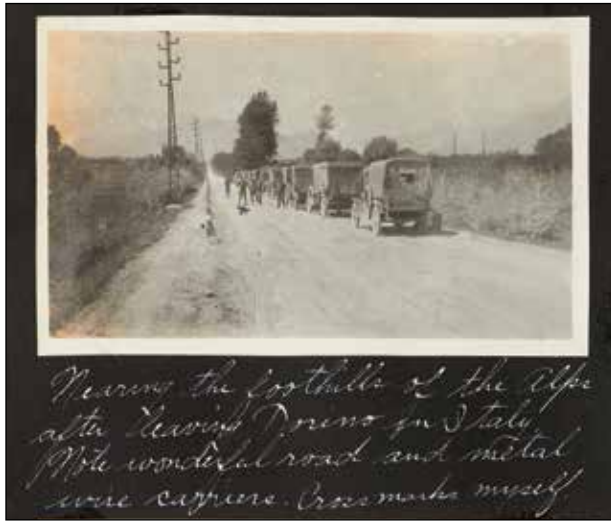 Nearing the foothills of the Alps
after leaving Dorino in Italy.
Note wonderful road and metal
wire carriers. Cross marks myself.